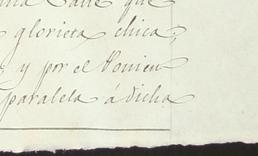 una Calle que
glorieta chica,
y por el Ponien
paralela á dicha